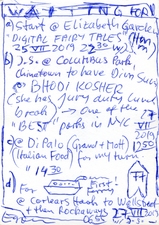 WAITING FOR
a) Start @ Elizabeth Garden
"DIGITAL FAIRY TALES"
25 VII 2019 2230
b) J.S. @ COLUMBUS Park
Chinatown to have Dim Sum
@ BHODI KOSHER
(she has jury duty lunch
break) → one of the
"BEST" parts in NYC
17 VII 2019 1250
c) @ Di Palo (Grand + Mott)
(Italian Food) for my turn.
" 1430 "
d) For First!
@ Corlears Hook to Wallstreet
+ then Rockaways
27 VII 2019